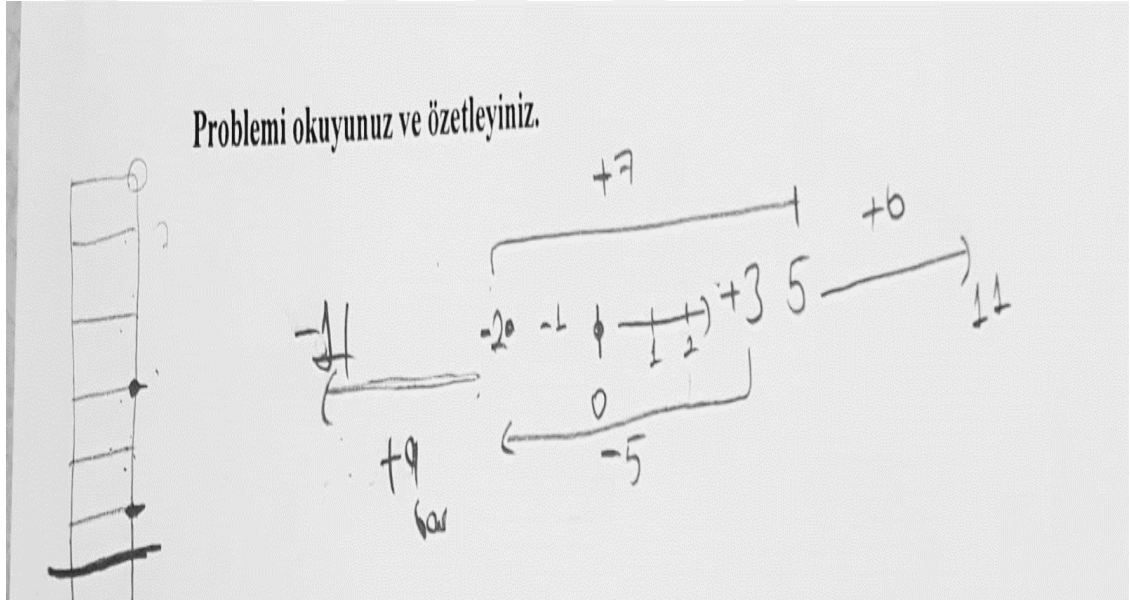 Problemi okuyunuz ve özetleyiniz.
+7
+6
-2 -1 +3 5
1 2
11
0
-5
+9